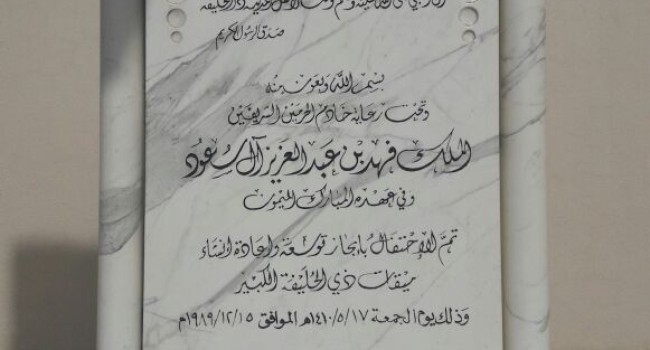 صدق الرسول الكريم
بسم الله وبعون منه
وتحت رعاية خادم الحرمين الشريفين
الملك فهد بن عبد العزيز آل سعود
وفي عهده المبارك الميمون
تم الإحتفال بانجاز توسعة واعادة انشاء
ميقات ذي الحليفة الكبير
وذلك يوم الجمعة ١٤١٠/٥/١٧هـ الموافق ١٩٨٩/١٢/١٥م